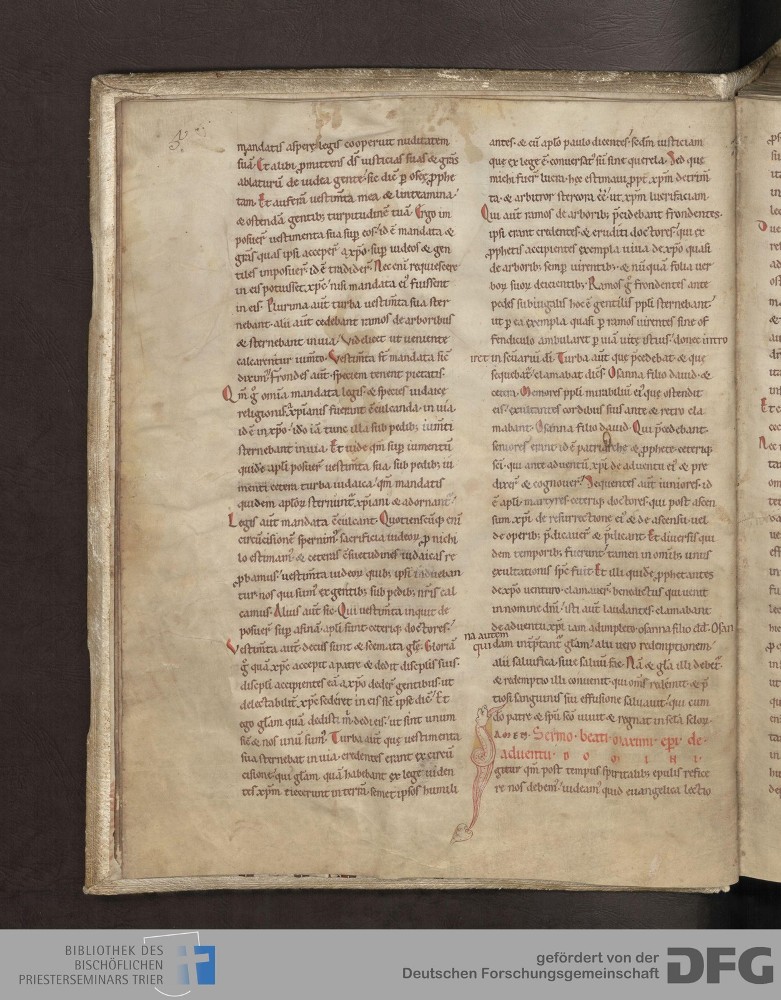 mandatis asperȩ legis cooperuit nuditatem
suā. Et alibi ꝓmittens dſ iusticias suas & grās
ablaturū de iudea gente. sic diē ꝑ oseȩ ꝓphe
tam. Et auferā uestimta mea & linteamina.
& ostendā gentibꝫ turpitudinē tuā. Ergo im
posuer uestimenta sua sup eos. id ē mandata &
grās quas ipsi acceper a xpo. sup iudeos & gen
tiles imposuer. id ē tradider. Nec eni requiescere
in eis potuisset xpc. nisi mandata ei fuissent
in eis. Plurima aut turba uestimta sua ster
nebant. alii aut cedebant ramos de arboribus
& sternebant in uia. Videlicet ut ueniente
calcarentur iumto. Vestimta st mandata sic
dixim. frondes aut speciem tenent pietatis.
Qm g omia mandata legis & species iudaicȩ
religionis xpianis fuerunt cculcanda in uia
id ē in xpo. ido iā tunc illa sub pedibꝫ iumti
sternebant in uia. Et uide qm sup iumentū
quide apli posuer uestimta sua. sub pedibꝫ iu
menti cetera turba iudaica. qm mandatis
quidem aplorꝫ sternunt xpiani & adornant.
Legis aut mandata cculcant. Quotienscūq eni
circūcisione spernim. sacrificia iudeorꝫ ꝓ nichi
lo estimam. & ceteras csuetudines iudaicas re
ꝓbamus. uestimta iudeorꝫ quibꝫ ipsi indueban
tur nos qui sum ex gentibꝫ sub pedibꝫ nris cal
camus. Alius aut sic. Qui uestimta inquit de
posuer sup asinā. apli sunt ceteriq doctores.
Vestimta aut decus sunt & scemata glȩ. Gloriā
g quā xpc accepit a patre & dedit discplis suis.
discpli accipientes eā a xpo deder gentibus ut
delectabilit xpc sederet in eis sic ipse diē. Et
ego glam quā dedisti m dedi eis. ut sint unum
sic & nos unū sum. Turba aut quȩ uestimenta
sua sternebat in uia. credentes erant ex circū
cisione. qui glam quā habebant ex lege uiden
tes xpm iiecerunt in terrā. semet ipsos humili
antes. & cū aplo paulo dicentes. scdm iusticiam
quȩ ex lege ē. conuersat sū sine querela. Sed quȩ
michi fuer lucra. hȩc estimaui ꝓpt xpm detrim
ta. & arbitror stercora ēē. ut xpm lucrifaciam.
Qui aut ramos de arboribꝫ pcidebant frondentes.
ipsi erant credentes & eruditi doctores. qui ex
ꝓphetis accipientes exempla uiua de xpo quasi
de arboribꝫ semp uirentibꝫ. & nūquā folia uer
borꝫ suorꝫ deicientibꝫ. Ramos g frondentes ante
pedes subiugalis hoc ē gentilis ppli sternebant.
ut ꝑ ea exempla quasi ꝑ ramos uirentes sine of
fendiculo ambularet ꝑ uiā uitȩ istius. donec intro
iret in scuariū di. Turba aut quȩ pcedebat & quȩ
sequebat. clamabat dics. Osanna filio dauid. &
cetera. Memores ppli mirabiliū ei quȩ ostendit
eis. exultantes cordibus suis ante & retro cla
mabant. Osanna filio dauid. Qui pcedebant.
seniores erant. id ē patriarche & ꝓphetȩ. ceteriq
sci. qui ante aduentū xpi de aduentu ei & pre
dixer & cognouer. Sequentes aut iuniores. id
ē apli. martyres. ceteriq doctores. qui post ascen
sum xpi. de resurrectione ei & de ascensu. uel
de operibꝫ pdicauer & pdicant. Et diuersis qui
dem temporibꝫ fuerunt. tamen in omibꝫ unius
exultationis spc fuit. Et illi quide ꝓphetantes
de xpo uenturo. clamauer. benedictus qui uenit
in nomine dni. isti aut laudantes clamabant
de aduentu xpi iam adimpleto. osanna filio dd. Osan
na autem
quidam intptant glam. alii uero redemptionem.
alii saluifica. siue saluū fac. Nā & gla illi debet.
& redemptio illi conuenit. qui oms redemit. & p
tiosi sanguinis sui effusione saluauit. qui cum
do patre & spu sco uiuit & regnat in scla sclorꝫ.
AMEN. Sermo beati maximi epi de
aduentu DOMINI
Igitur qm post tempus spiritalibꝫ epulis refice
re nos debem. uideam quid euangelica lectio
BIBLIOTHEK DES
BISCHÖFLICHEN
PRIESTERSEMINARS TRIER
gefördert von der
Deutschen Forschungsgemeinschaft
DFG